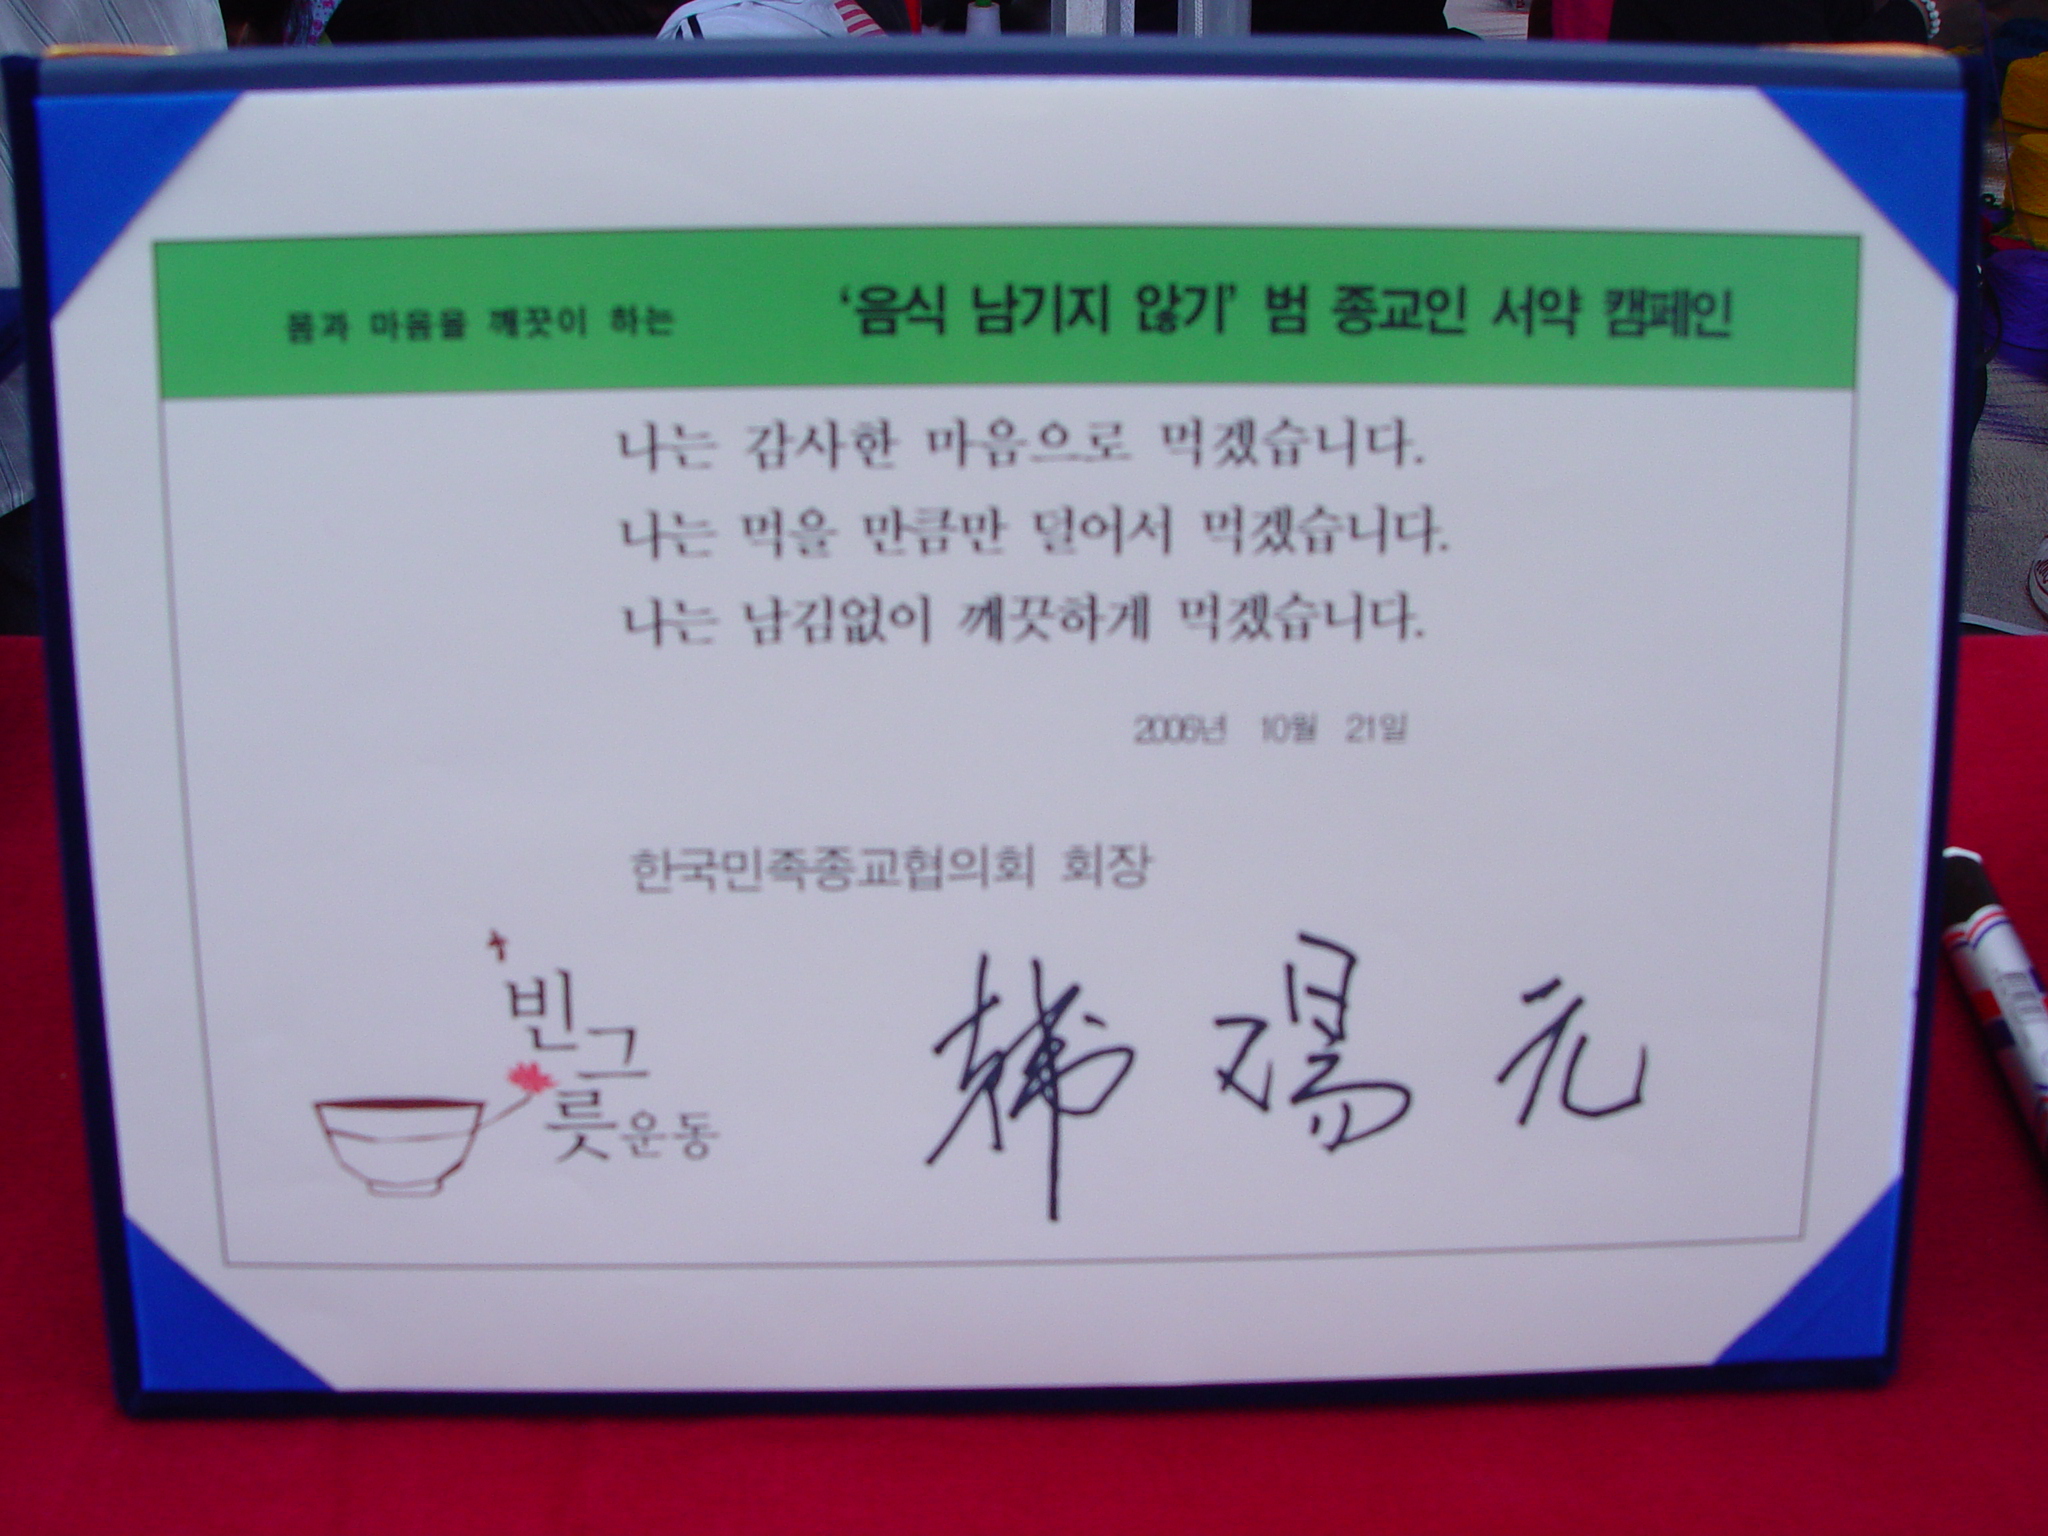 몸과 마음을 깨끗이 하는 '음식 남기지 않기' 범 종교인 서약 캠페인
나는 감사한 마음으로 먹겠습니다.
나는 먹을 만큼만 덜어서 먹겠습니다.
나는 남김없이 깨끗하게 먹겠습니다.
2006년 10월 21일
한국민족종교협의회 회장
빈그릇운동
韓陽元